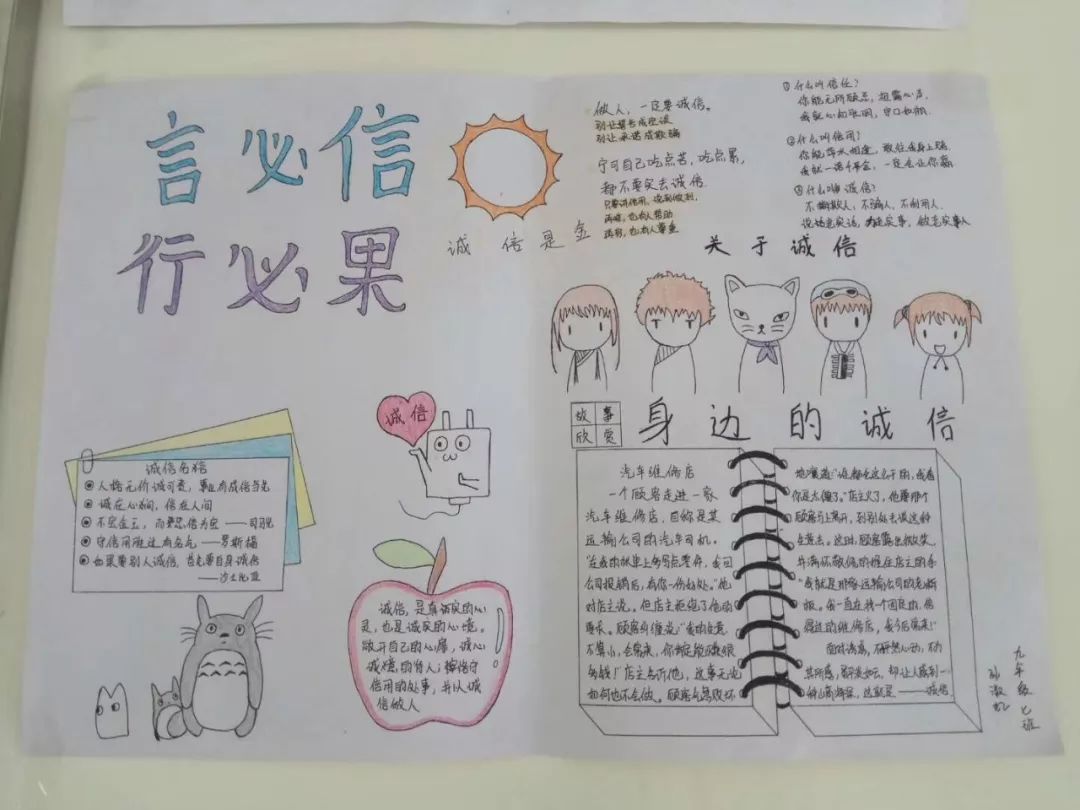 言必信
行必果
诚信是金
做人，一定要诚信。
别让誓言成空谈
别让承诺成欺骗
宁可自己吃点苦，吃点累，
都不要失去诚信.
只要讲信用，说到做到，
再难，也有人帮助
再穷，也有人尊重
①什么叫信任？
你能无所顾忌，袒露心声，
我就心如牢洞，守口如瓶.
②什么叫信用？
我就一诺千金，一定会让你赢
③什么叫诚信？
不欺人，不骗人，不利用人.
说话走实话，做走实事人
关于诚信
诚信
诚信名语
人格无价诚可贵，事业有成信当先
诚在心间，信在人间
不宝金玉，而忠信为宝 ——司
守信用胜过有名气 ——罗斯福
如果要别人诚信，首先要自身诚信
——沙士比亚
诚信，是真诚实的心
灵，也是诚实的心境。
敞开自己的心扉，诚心
诚意的待人；恪守
信用的处事，并以诚
信做人
故事
欣赏
身边的诚信
汽车维修店
一个顾客走进一家
汽车维修店，自称是某
运输公司的汽车司机。
“在我的账单上多写点零件，我回
公司报销后，有你一份好处。”他
对店主说。但店主拒绝了他的
要求。顾客纠缠说：“我的生意
不算小，会常来，你肯定能赚很
多钱！”店主告诉他，这事无论
如何也不会做。顾客气急败坏
地嚷道：“谁都会这么干的，我看
你是太傻了。”店主火了，他要那个
顾客马上离开，到别处去谈这种
生意去。这时，顾客露出微笑，
并满怀敬佩的握住店主的手
“我就是那家运输公司的老
板。我一直在找一个固定的、信
得过的维修店，我今后常来！”
面对诱惑，不怦然心动，不为
其所惑，却让人感到一
这就是——诚信
九年级七班
孙